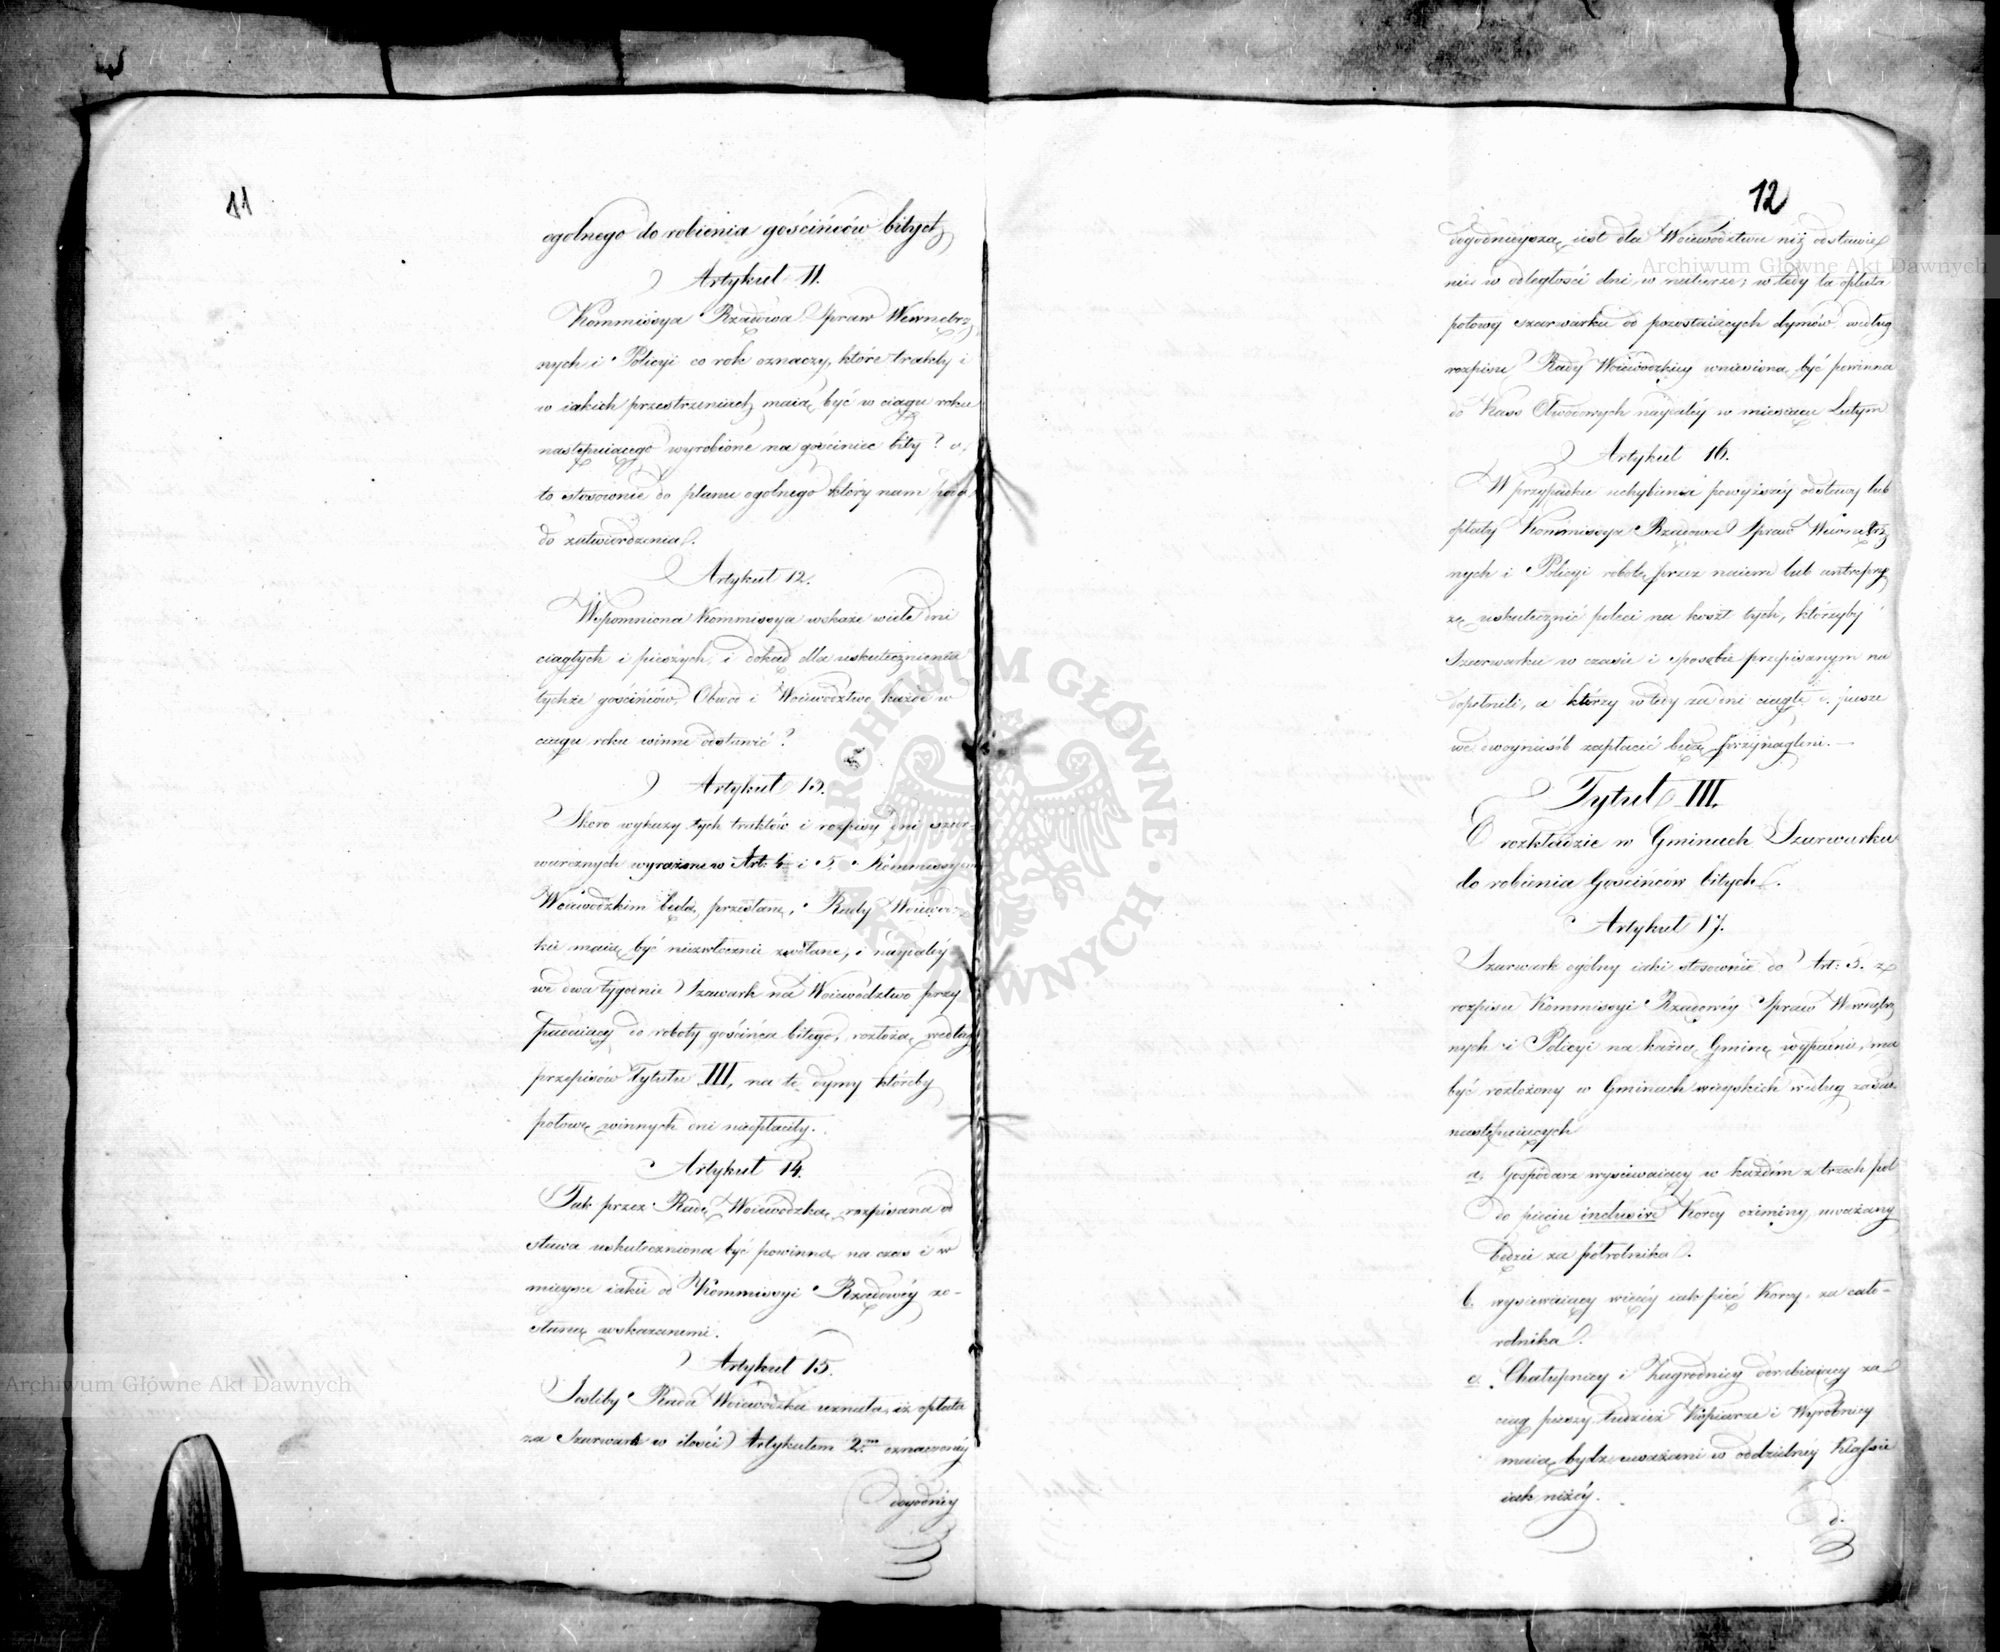 11
ogolnego do robienia gościńców bitych
Artykuł 11.
Kommissya Rządowa Spraw Wewnętrz-
nych i Policyi co rok oznaczy, które trakty i
w iakich przestrzeniach maią być w ciągu roku
następuiącego wyrobione na gościniec bity? a
to stosownie do planu ogolnego który nam poda
do zatwierdzenia.
Artykuł 12.
Wspomniona Kommissya wskaże wiele dni
ciągłych i pieszych, i dokąd dla uskutecznienia
tychże gościńców, Obwód i Woiewództwo każde w
ciągu roku winne dostawić?
Artykuł 13.
Skoro wykazy tych traktów i rozpisy dni szar-
warcznych wyrażone w Art: 4 i 5. Kommissyom
Woiewódzkim będą przesłane, Rady Woiewodz-
kie maią być niezwłocznie zwołane, i naypóźniéy
we dwa tygodnie Szarwark na Woiewództwo przy
padaiący do roboty gościńca bitego, rozłożą według
przepisów Tytułu III, na te dymy któreby
połowę winnych dni nieopłaciły.
Artykuł 14.
Tak przez Radę Woiewódzką rozpisana od
stawa uskuteczniona być powinna na czas i w
mieysce iakie od Kommissyi Rządowéy zo-
staną wskazanemi.
Artykuł 15.
Jesliby Rada Woiewódzka uznała, iż opłata
za Szarwark w ilości Artykułem 2.m oznaczonéy
dogodniéy
12
dogodnieyszą iest dla Woiewództwa niż odstawie
nie w odległości dni w naturze; w tedy ta opłata
połowy szarwarku od pozostaiących dymów według
rozpisu Rady Woiewódzkiey wniesiona być powinna
do Kass Obwodowych naypóźniéy w miesiącu Lutym
Artykuł 16.
W przypadku uchybienia powyższéy odstawy lub
opłaty Kommissya Rządowa Spraw Wewnętrz
nych i Policyi robotę przez naiem lub antrepry
zę uskutecznić poleci na koszt tych, którzyby
Szarwarku w czasie i sposobie przepisanym nie
dopełnili, a którzy w tedy za dni ciągłe i piesze
we dwoynasób zapłacić będą przynagleni.—
Tytuł III.
O rozkładzie w Gminach Szarwarku
do robienia Gościńców bitych.
Artykuł 17.
Szarwark ogólny iaki stosownie do Art: 5. z
rozpisu Kommissyi Rządowéy Spraw Wewnętrz
nych i Policyi na każdą Gminę wypadnie, ma
być rozłożony w Gminach wieyskich według zasad
następuiących
a. Gospodarz wysiewaiący w każdém z trzech pól
do pięciu inclusive Korcy oziminy, uważany
będzie za półrolnika.
b. wysiewaiący więcéy iak pięć Korcy, za cało-
rolnika.
c. Chałupnicy i Zagrodnicy odrabiaiący za
ciąg pieszy tudzież Kopiarze i Wyrobnicy
maią bydź uważani w oddzielnéy Klassie
iak niżéy.
d.
Archiwum Główne Akt Dawnych
Archiwum Główne Akt Dawnych
ARCHIWUM GŁÓWNE AKT DAWNYCH